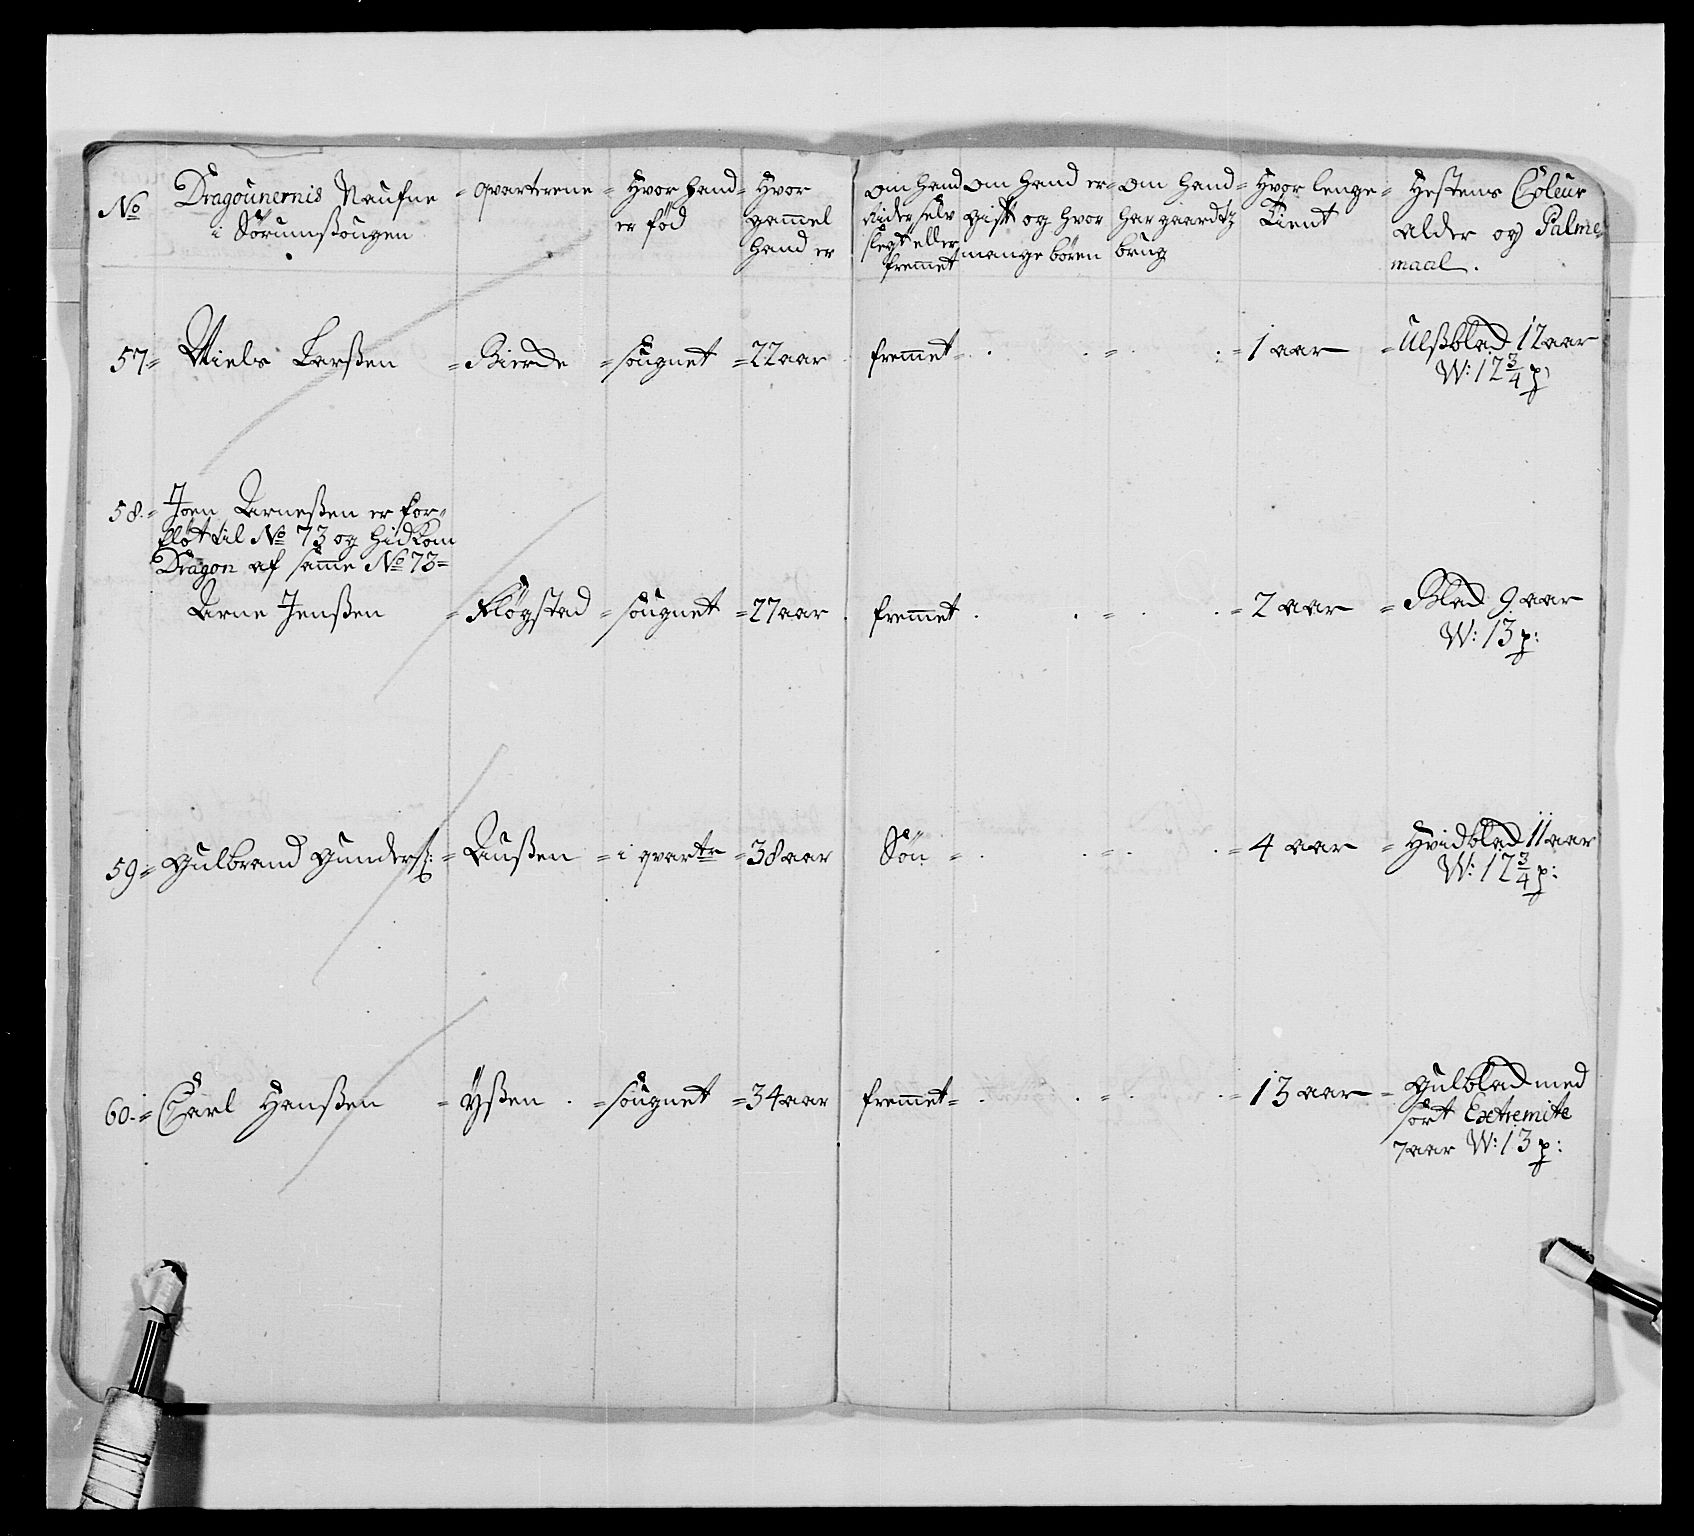 No
Dragounernis Naufne
i Sørumsougen
qvarterene
Hvor hand
er fød
Hvor
gammel
hand er
om hand
Rider selv
slegt eller
fremmet
om hand er
gist og hvor
mange børen
om hand
har gaardtz
brug
Hvor lenge
Tient
Hestens Coleur
Alder og Palme
maal.
57= Niels Larßen = Bierde = sougnet = 22 aar fremmet = 1 aar = Ulßblad 12 aar
W: 12 3/4 p:
58.= Joen Arneßen er for-
fløt til No 73 og hidkom
Dragon af samme No 73=
Arne Jenßen = Fløgstad = sougnet = 27 aar fremmet = 2 aar = Blad 9 aar
W: 13 p:
59= Gulbrand Gunderß: = Außen = i qvartr = 38 aar Søn = 4 aar = Hvidblad 11 aar
W: 12 3/4 p:
60.= Carl Hanßen = Yßen = sougnet = 34 aar fremmet = 13 aar = Gulblad med
sort Extremite
7 aar W: 13 p: